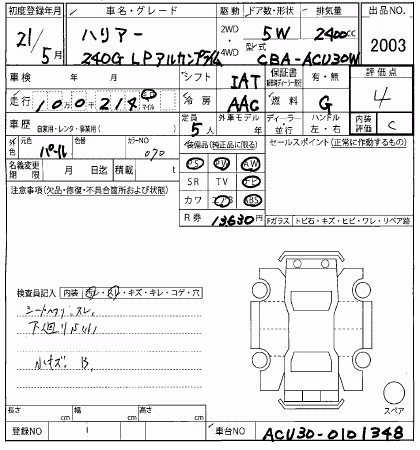 初度登録年月 車名・グレード 駆動 ドア数・形状 排気量 出品NO.
21年 5月 ハリアー 2WD 4WD 5W 2400cc 2003
240G LPアルカンプライム 型式 CBA-ACU30W
車検 年 月 シフト IAT 保証書 記録簿(ディーラー発行) 有・無 評価点
走行 10万0千218 km マイル 冷房 AAC 燃料 G 4
車歴 自家用・レンタ・事業用( ) 定員 5人 外車モデル 年 ディーラー・並行 ハンドル 左・右 内装評価 C
外色 元色 パール カラーNO 070 装備品(純正品に限る) セールスポイント(正常に作動するもの)
PS PW AW
名義変更期限 月 日迄 積載 t SR TV ナビ
注意事項(欠品・修復・不具合箇所および状態) カワ エアB ABS
R券 13,630円 Fガラス トビ石・キズ・ヒビ・ワレ・リペア跡
検査員記入 内装 汚レ・スレ・キズ・キレ・コゲ・穴
下廻りサビ
小キズ B
スペア
長さ cm 幅 cm 高さ cm
登録NO 車台NO ACU30-0101348